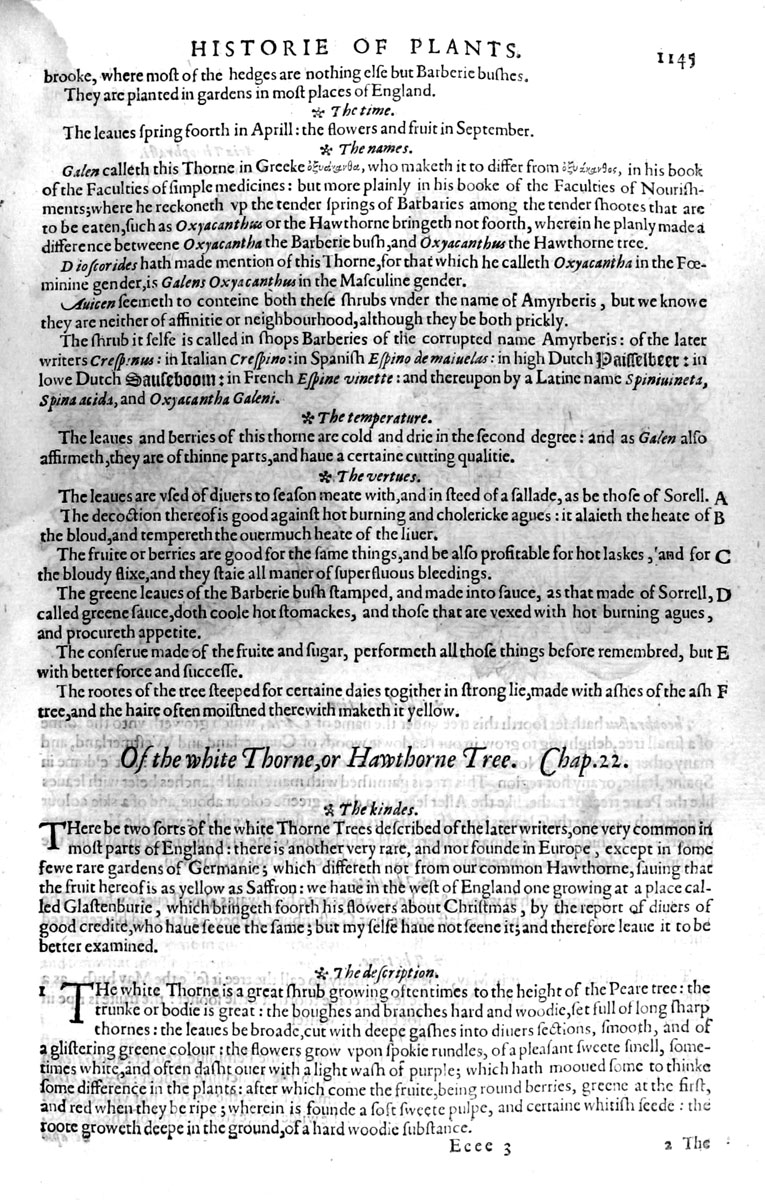 HISTORIE OF PLANTS. 1145
brooke, where moſt of the hedges are nothing elſe but Barberie buſhes.
They are planted in gardens in moſt places of England.
* The time.
The leaues ſpring foorth in Aprill: the flowers and fruit in September.
* The names.
Galen calleth this Thorne in Greeke ὀξυάκανθα, who maketh it to differ from ὀξυάκανθος, in his book
of the Faculties of ſimple medicines: but more plainly in his booke of the Faculties of Nouriſh-
ments; where he reckoneth vp the tender ſprings of Barbaries among the tender ſhootes that are
to be eaten, ſuch as Oxyacanthus or the Hawthorne bringeth not foorth, wherein he planly made a
difference betweene Oxyacantha the Barberie buſh, and Oxyacanthus the Hawthorne tree.
Dioſcorides hath made mention of this Thorne, for that which he calleth Oxyacantha in the Fœ-
minine gender, is Galens Oxyacanthus in the Maſculine gender.
Auicen ſeemeth to conteine both theſe ſhrubs vnder the name of Amyrberis, but we knowe
they are neither of affinitie or neighbourhood, although they be both prickly.
The ſhrub it ſelfe is called in ſhops Barberies of the corrupted name Amyrberis: of the later
writers Creſpinus: in Italian Creſpino: in Spaniſh Eſpino de maiuelas: in high Dutch Paiſſelbeer: in
lowe Dutch Sauſeboom: in French Eſpine vinette: and thereupon by a Latine name Spiniuineta,
Spina acida, and Oxyacantha Galeni.
* The temperature.
The leaues and berries of this thorne are cold and drie in the ſecond degree: and as Galen alſo
affirmeth, they are of thinne parts, and haue a certaine cutting qualitie.
* The vertues.
The leaues are vſed of diuers to ſeaſon meate with, and in ſteed of a ſallade, as be thoſe of Sorell. A
The decoction thereof is good againſt hot burning and cholericke agues: it alaieth the heate of B
the bloud, and tempereth the ouermuch heate of the liuer.
The fruite or berries are good for the ſame things, and be alſo profitable for hot laskes, and for C
the bloudy flixe, and they ſtaie all maner of ſuperfluous bleedings.
The greene leaues of the Barberie buſh ſtamped, and made into ſauce, as that made of Sorrell, D
called greene ſauce, doth coole hot ſtomackes, and thoſe that are vexed with hot burning agues,
and procureth appetite.
The conſerue made of the fruite and ſugar, performeth all thoſe things before remembred, but E
with better force and ſucceſſe.
The rootes of the tree ſteeped for certaine daies togither in ſtrong lie, made with aſhes of the aſh F
tree, and the haire often moiſtned therewith maketh it yellow.
Of the white Thorne, or Hawthorne Tree. Chap. 22.
* The kindes.
THere be two ſorts of the white Thorne Trees deſcribed of the later writers, one very common in
moſt parts of England: there is another very rare, and not founde in Europe, except in ſome
fewe rare gardens of Germanie; which differeth not from our common Hawthorne, ſauing that
the fruit hereof is as yellow as Saffron: we haue in the weſt of England one growing at a place cal-
led Glaſtenburie, which bringeth foorth his flowers about Chriſtmas, by the report of diuers of
good credite, who haue ſeene the ſame; but my ſelfe haue not ſeene it, and therefore leaue it to be
better examined.
* The deſcription.
1 THe white Thorne is a great ſhrub growing oftentimes to the height of the Peare tree: the
trunke or bodie is great: the boughes and branches hard and woodie, ſet full of long ſharp
thornes: the leaues be broade, cut with deepe gaſhes into diuers ſections, ſmooth, and of
a gliſtering greene colour: the flowers grow vpon ſpokie rundles, of a pleaſant ſweete ſmell, ſome-
times white, and often daſht ouer with a light waſh of purple; which hath mooued ſome to thinke
ſome difference in the plants: after which come the fruite, being round berries, greene at the firſt,
and red when they be ripe; wherein is founde a ſoft ſweete pulpe, and certaine whitiſh ſeede: the
roote groweth deepe in the ground, of a hard woodie ſubſtance.
Eeee 3 2 The